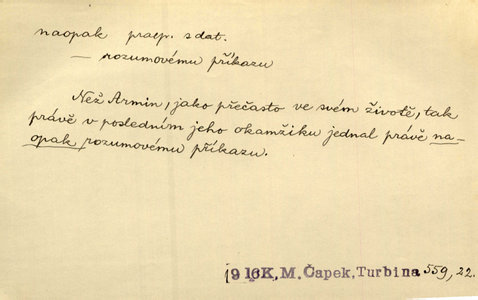 naopak praep. s dat.
— rozumovému příkazu
Než Armin, jako přečasto ve svém životě, tak
právě v posledním jeho okamžiku jednal právě na-
opak rozumovému příkazu.
916K, M. Čapek, Turbina 559, 22.